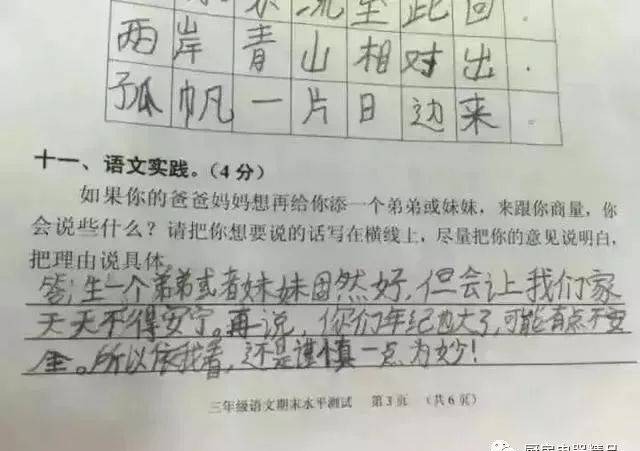 流至此回
两岸青山相对出.
孤帆一片日边来。
十一、语文实践。(4分)
如果你的爸爸妈妈想再给你添一个弟弟或妹妹，来跟你商量，你
会说些什么？请把你想要说的话写在横线上，尽量把你的意见说明白，
把理由说具体。
答:生一个弟弟或者妹妹固然好，但会让我们家
天天不得安宁。再说，你们年纪也大了，可能有点不安
全。所以依我看，还是谨慎一点为妙！
三年级语文期末水平测试 第3页 （共6页）
厨房电器精品